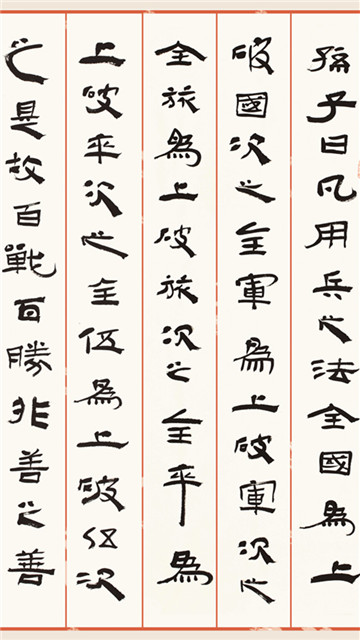 孫子曰凡用兵之法全國為上
破國次之全軍為上破軍次之
全旅為上破旅次之全卒為
上破卒次之全伍為上破伍次
之是故百戰百勝非善之善